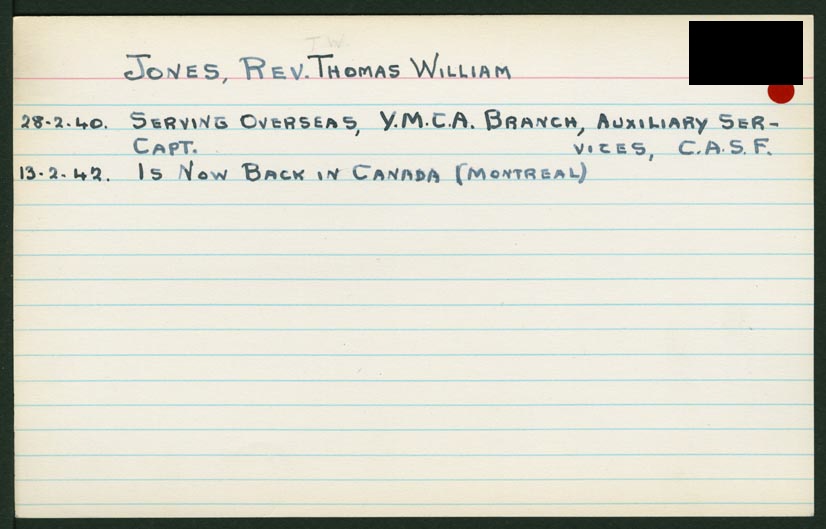 T.W.
JONES, REV. THOMAS WILLIAM
28-2-40. SERVING OVERSEAS, Y.M.C.A. BRANCH, AUXILIARY SER-
CAPT. VICES, C.A.S.F.
13-2-42. IS NOW BACK IN CANADA (MONTREAL)